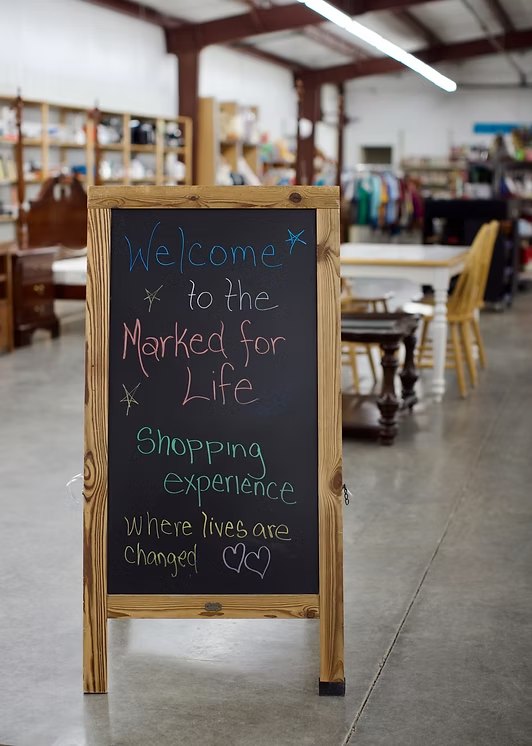 Welcome
to the
Marked for
Life
Shopping
experience
where lives are
changed